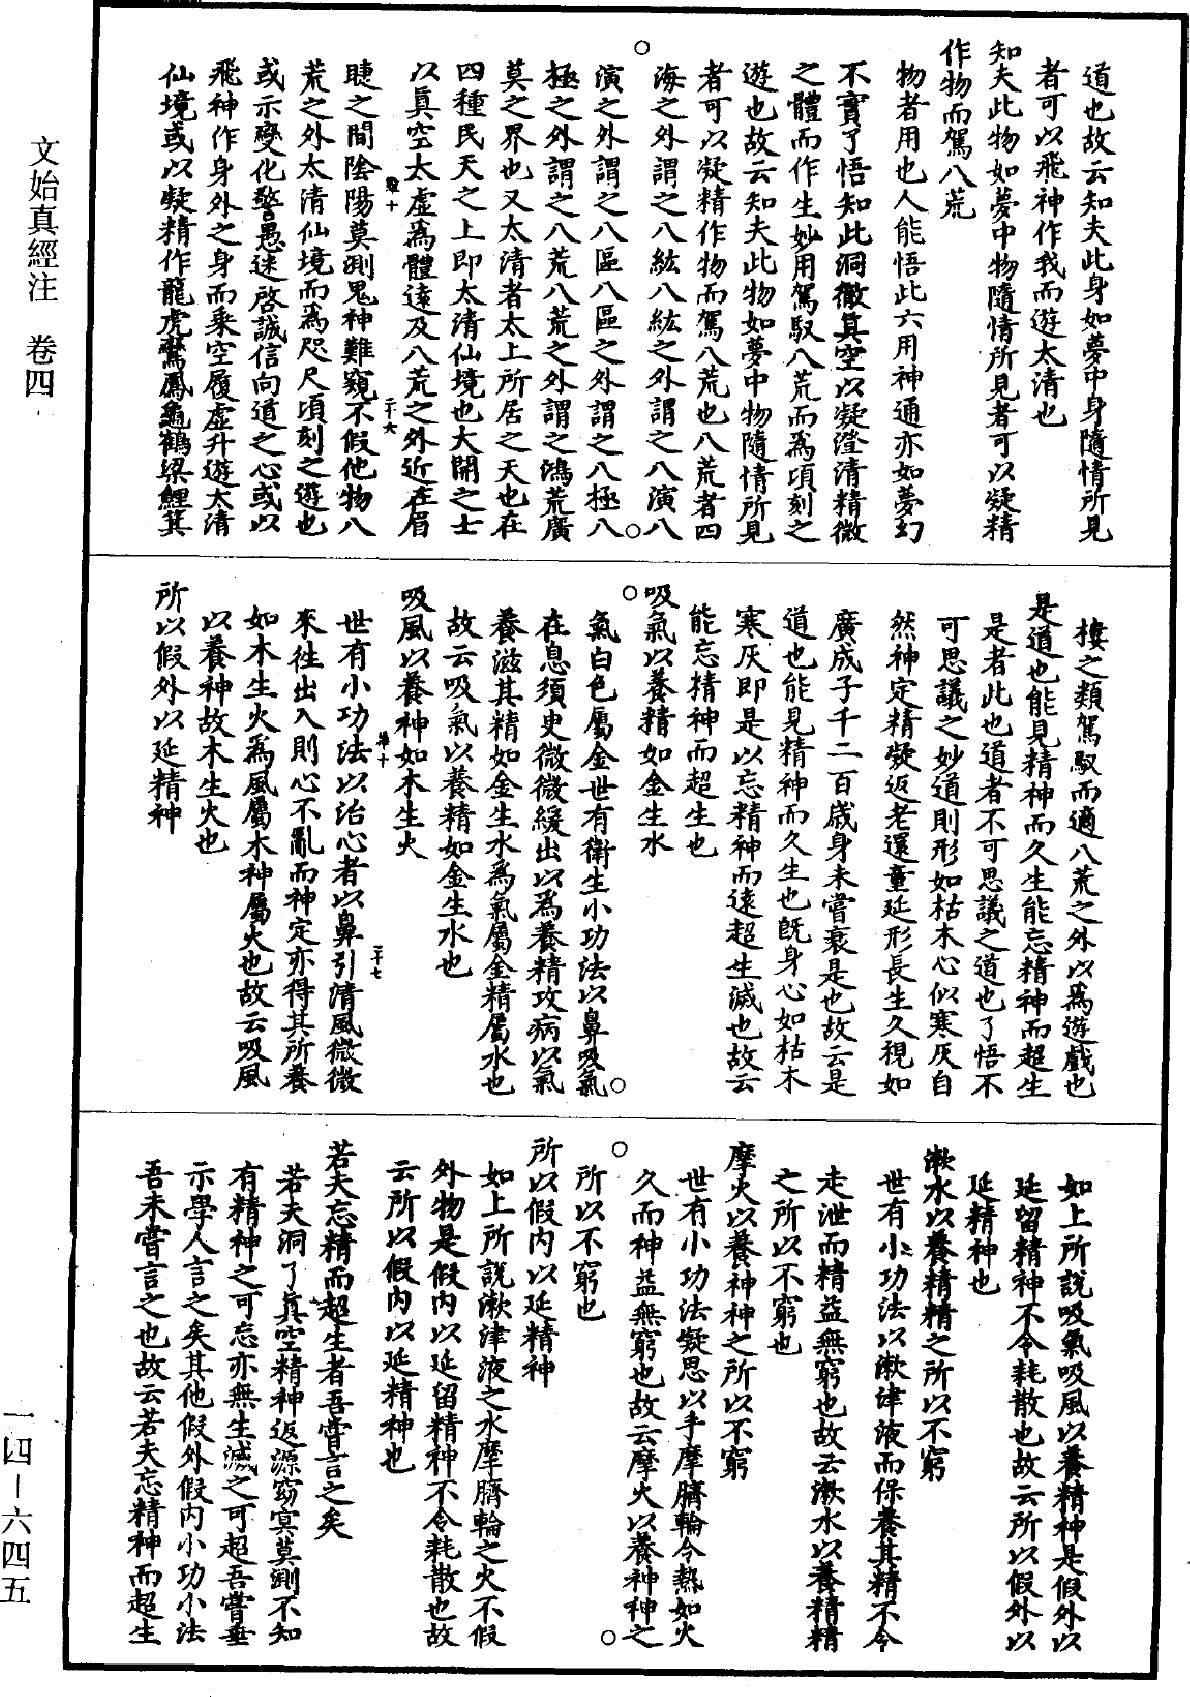 道也故云知夫此身如夢中身隨情所見
者可以飛神作我而遊太清也
知夫此物如夢中物隨情所見者可以凝精
作物而駕八荒
物者用也人能悟此六用神通亦如夢幻
不實了悟知此洞徹真空以凝澄清精微
之體而作生妙用駕馭八荒而為頃刻之
遊也故云知夫此物如夢中物隨情所見
者可以凝精作物而駕八荒也八荒者四
海之外謂之八紘八紘之外謂之八演八
演之外謂之八區八區之外謂之八極八
極之外謂之八荒八荒之外謂之鴻荒廣
莫之界也又太清者太上所居之天也在
四種民天之上即太清仙境也大開之士
以真空太虛為體遠及八荒之外近在眉
睫之間陰陽莫測鬼神難窺不假他物八
荒之外太清仙境而為咫尺頃刻之遊也
或示變化警愚迷啓誠信向道之心或以
飛神作身外之身而乘空履虛升遊太清
仙境或以凝精作龍虎鸞鳳龜鶴梁鯉箕
棲之類駕馭而適八荒之外以為遊戲也
是道也能見精神而久生能忘精神而超生
是者此也道者不可思議之道也了悟不
可思議之妙道則形如枯木心似寒灰自
然神定精凝返老還童延形長生久視如
廣成子千二百歲身未嘗衰是也故云是
道也能見精神而久生也既身心如枯木
寒灰即是以忘精神而遠超生滅也故云
能忘精神而超生也
吸氣以養精如金生水
氣白色屬金世有衛生小功法以鼻吸氣
在息須臾微微緩出以為養精攻病以氣
養滋其精如金生水為氣屬金精屬水也
故云吸氣以養精如金生水也
吸風以養神如木生火
世有小功法以治心者以鼻引清風微微
來往出入則心不亂而神定亦得其所養
如木生火為風屬木神屬火也故云吸風
以養神故木生火也
所以假外以延精神
如上所說吸氣吸風以養精神是假外以
延留精神不令耗散也故云所以假外以
延精神也
漱水以養精精之所以不窮
世有小功法以漱津液而保養其精不令
走泄而精益無窮也故云漱水以養精精
之所以不窮也
摩火以養神神之所以不窮
世有小功法凝思以手摩臍輪令熱如火
久而神益無窮也故云摩火以養神神之
所以不窮也
所以假內以延精神
如上所說漱津液之水摩臍輪之火不假
外物是假內以延留精神不令耗散也故
云所以假內以延精神也
若夫忘精而超生者吾嘗言之矣
若夫洞了真空精神返源窈冥莫測不知
有精神之可忘亦無生滅之可超吾嘗垂
示學人言之矣其他假外假內小功小法
吾未嘗言之也故云若夫忘精神而超生
文始真經注　卷四
一四—六四五